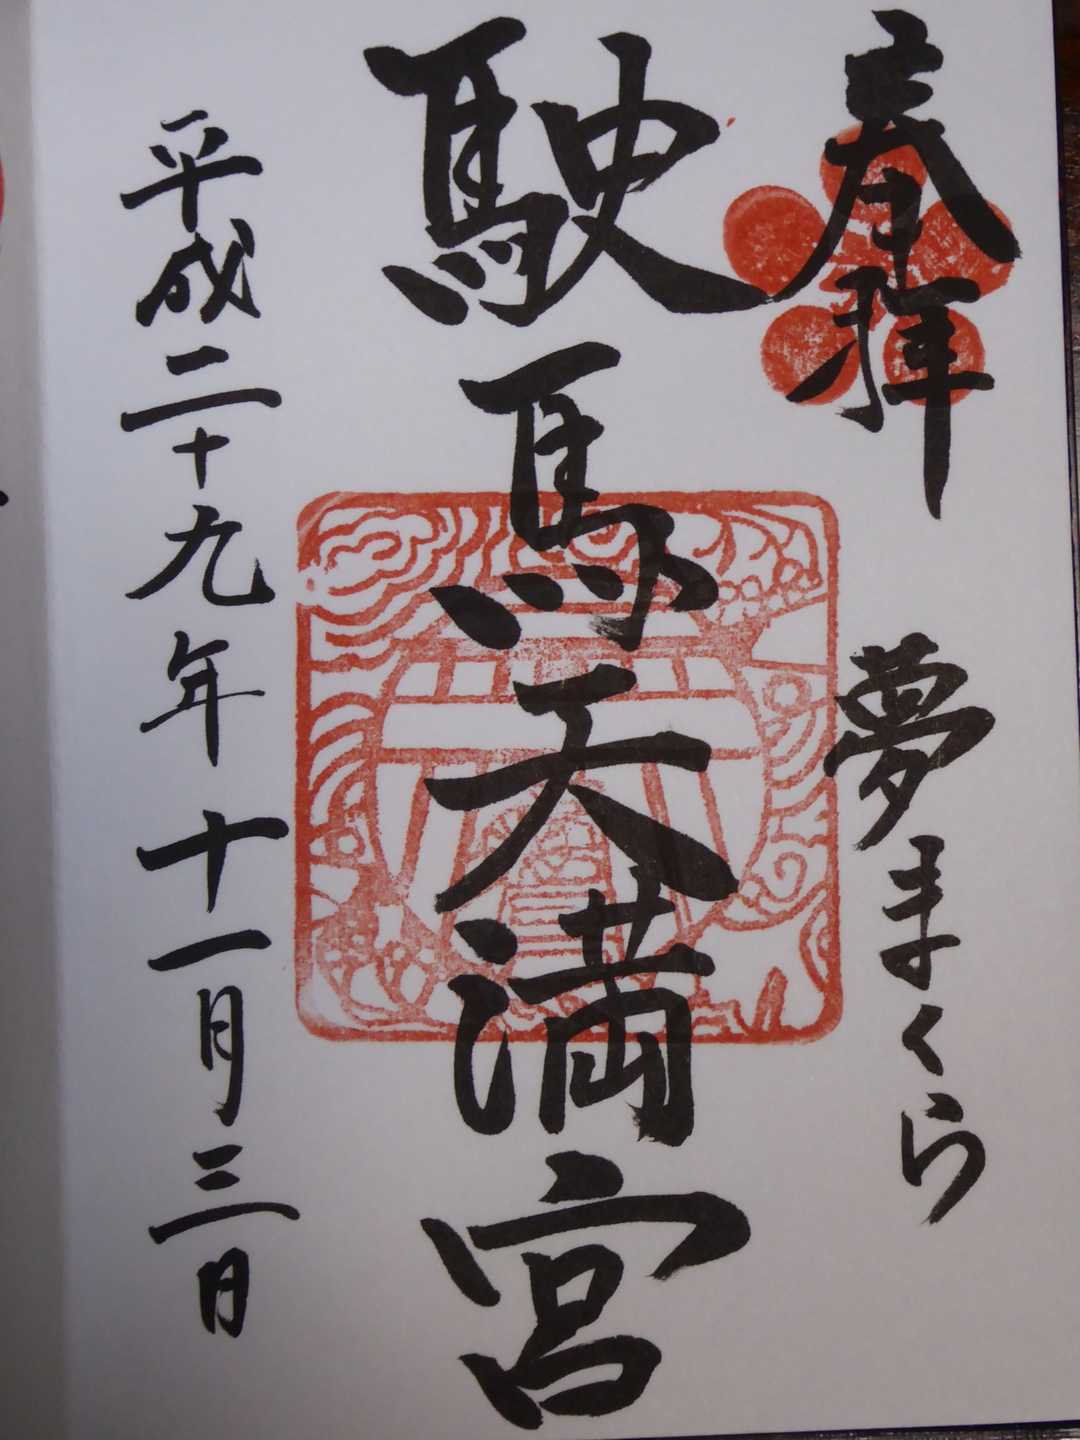 奉拝
夢まくら
駛馬天満宮
平成二十九年十一月三日